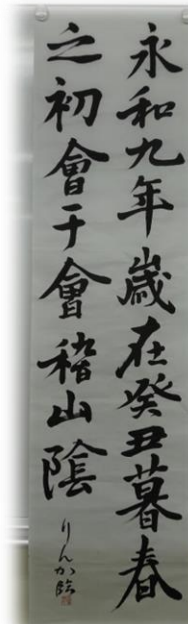 永和九年歳在癸丑暮春
之初會于會稽山陰
りんか臨